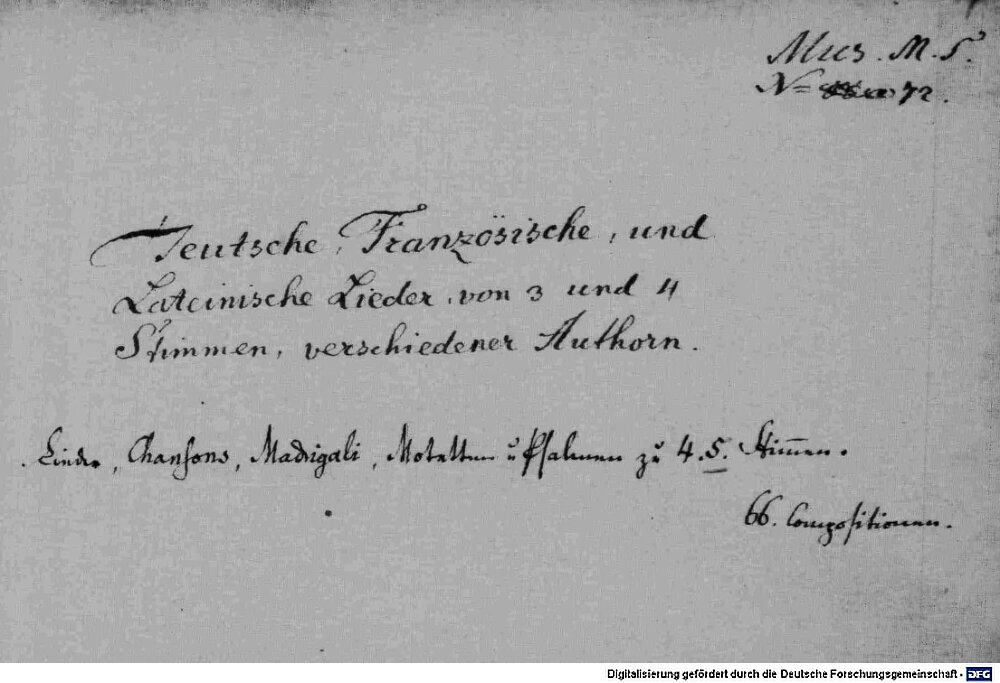 Mus. M. S.
N= 72.
Teutsche, Französische, und
Lateinische Lieder, von 3 und 4
Stimmen, verschiedener Authorn.
Lieder, Chansons, Madrigali, Motetten u Psalmen zu 4. 5. Stim̅en.
66. Compositionen.
Digitalisierung gefördert durch die Deutsche Forschungsgemeinschaft - DFG